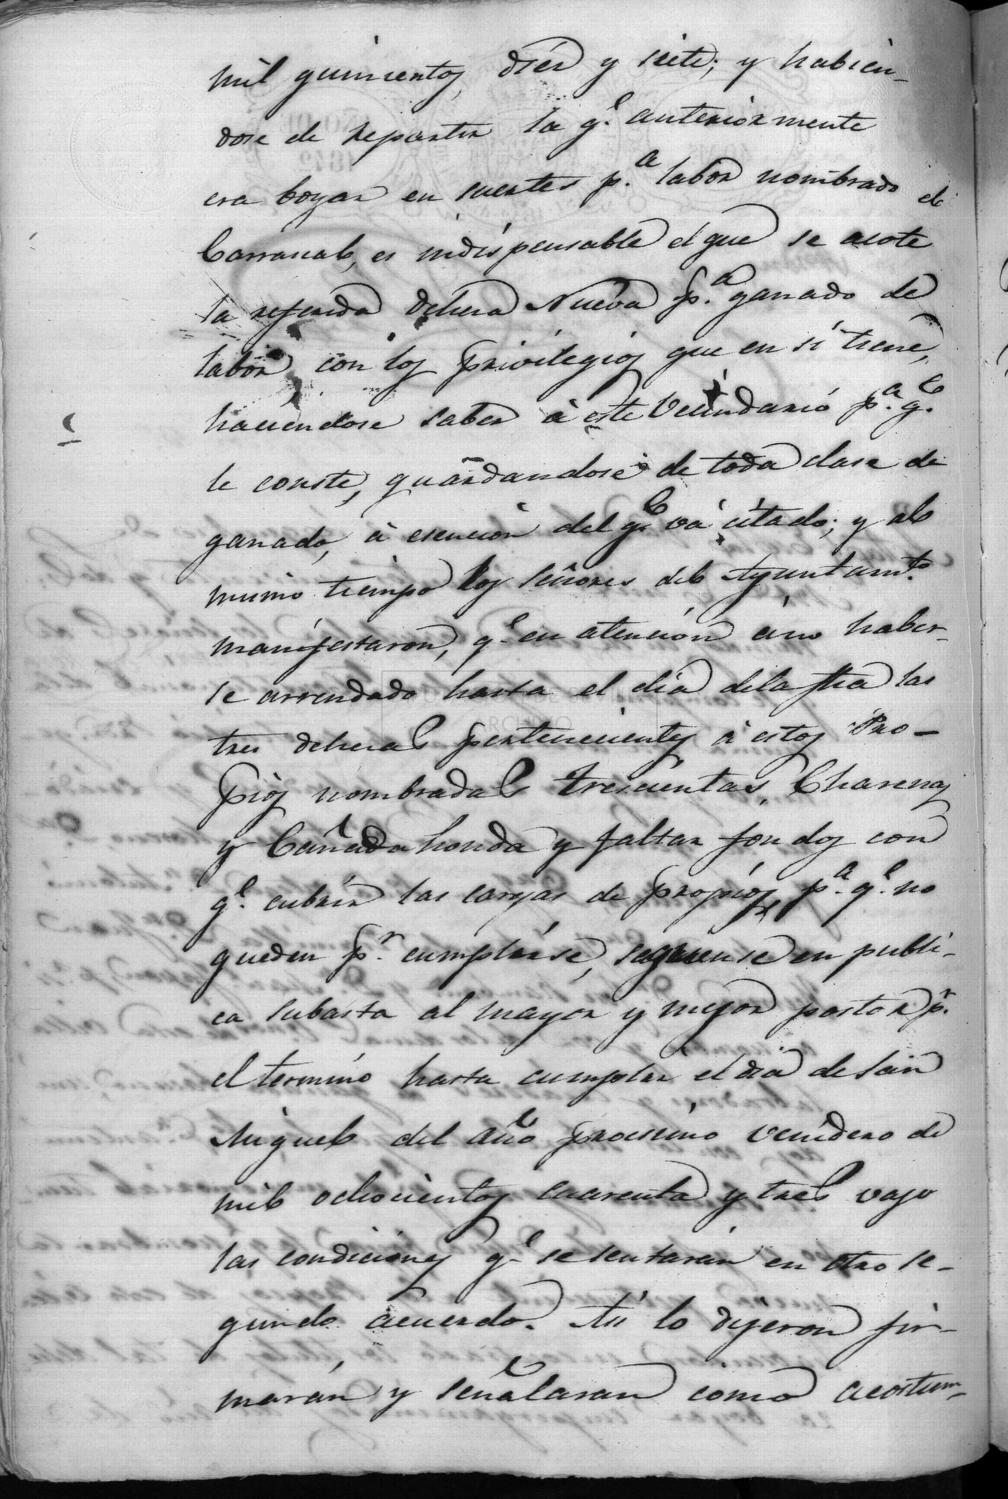 mil quinientos, diéz y siete; y habien-
dose de repartir la q.e anteriormente
era boyar en suertes p.a labor nombrado el
Carrascal, es indispensable el que se acote
la referida dehesa Nueva p.a ganado de
labor, con los privilegios que en sí tiene,
haciendose saber á este Vecindario p.a q.e
le conste, guardandose de toda clase de
ganado, á esencion del q.e vá citado; y al
mismo tiempo los señores del Ayuntam.to
manifestaron, q.e en atencion á no haber-
se arrendado hasta el dia dela fha las
tres dehesas pertenecientes á estos Pro-
pios nombradas Trescientas, Charena,
y Cañada honda y faltar fondos con
q.e cubrir las cargas de propios p.a q.e no
queden p.r cumplirse, saquense en publi-
ca subasta al mayor y mejor postor p.r
el termino hasta cumplir el dia de San
Miguel del año procsimo venidero de
mil ochocientos cuarenta y tres vajo
las condiciones q.e se sentarán en otro se-
gundo acuerdo. Asi lo dijeron fir-
marán y señalaran como acostum-